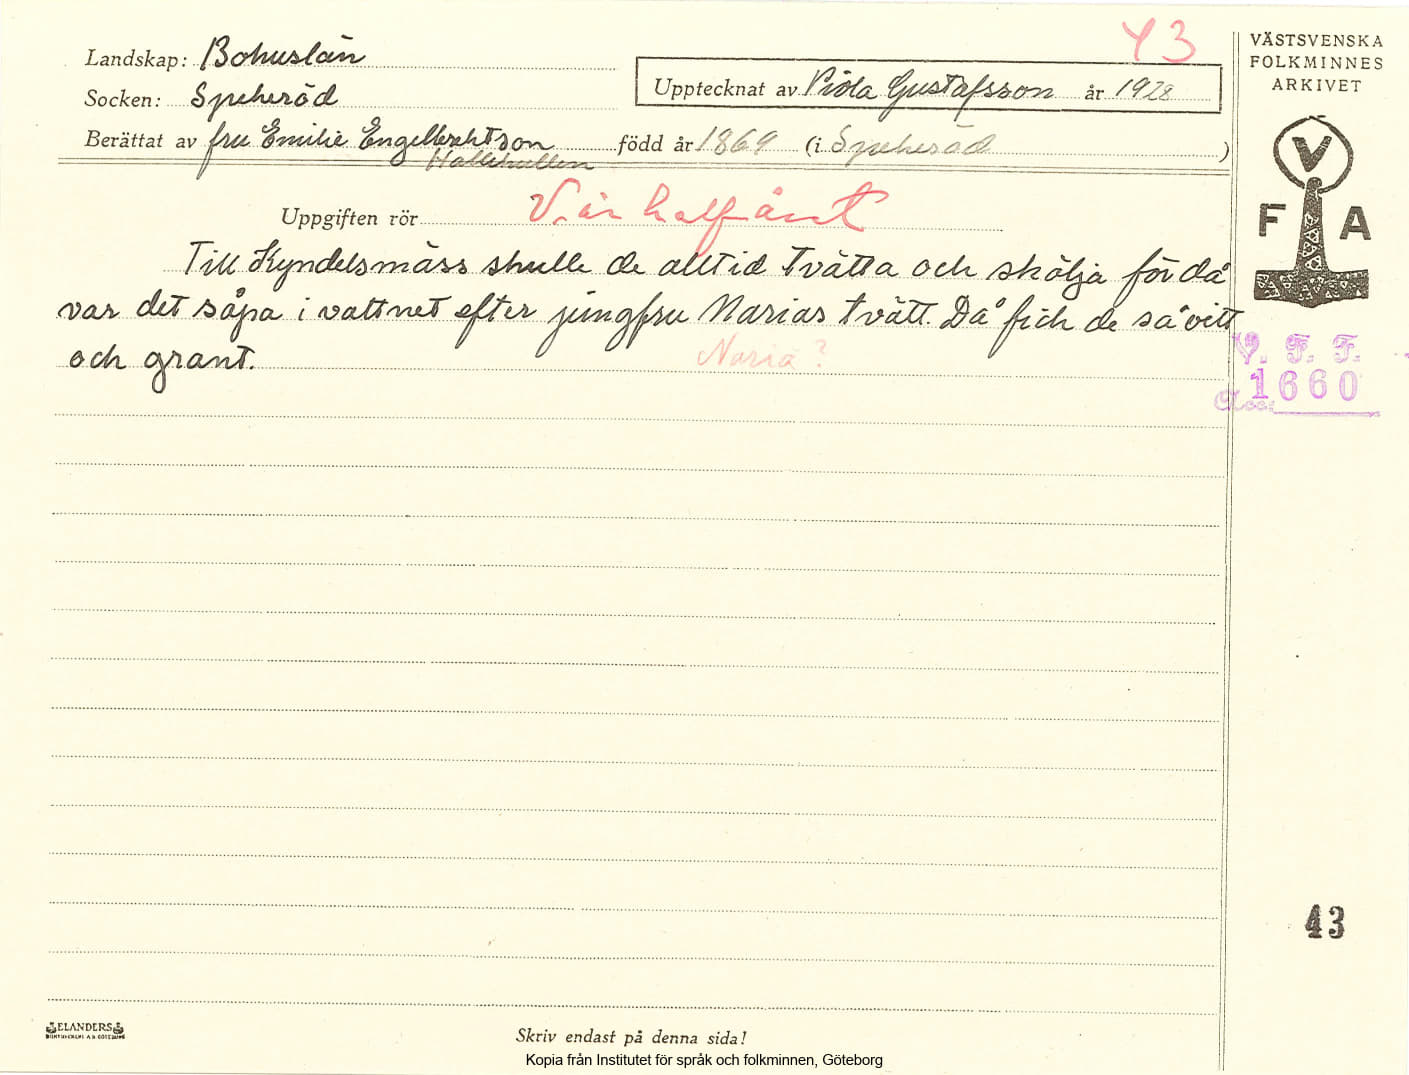 43
Landskap: Bohuslän
Socken: Spekeröd
Upptecknat av Viola Gustafsson år 1928
Berättat av fru Emilie Engelbrektson född år 1869 (i Spekeröd)
Uppgiften rör Vår halfånt
Till Kyndelsmäss skulle de alltid tvätta och skölja för då
var det såpa i vattnet efter jungfru Marias tvätt. Då fick de så vitt
och grant.
Maria?
VÄSTSVENSKA
FOLKMINNES
ARKIVET
V
F A
V. F. F.
Acc: 1660
43
ELANDERS
Skriv endast på denna sida!
Kopia från Institutet för språk och folkminnen, Göteborg